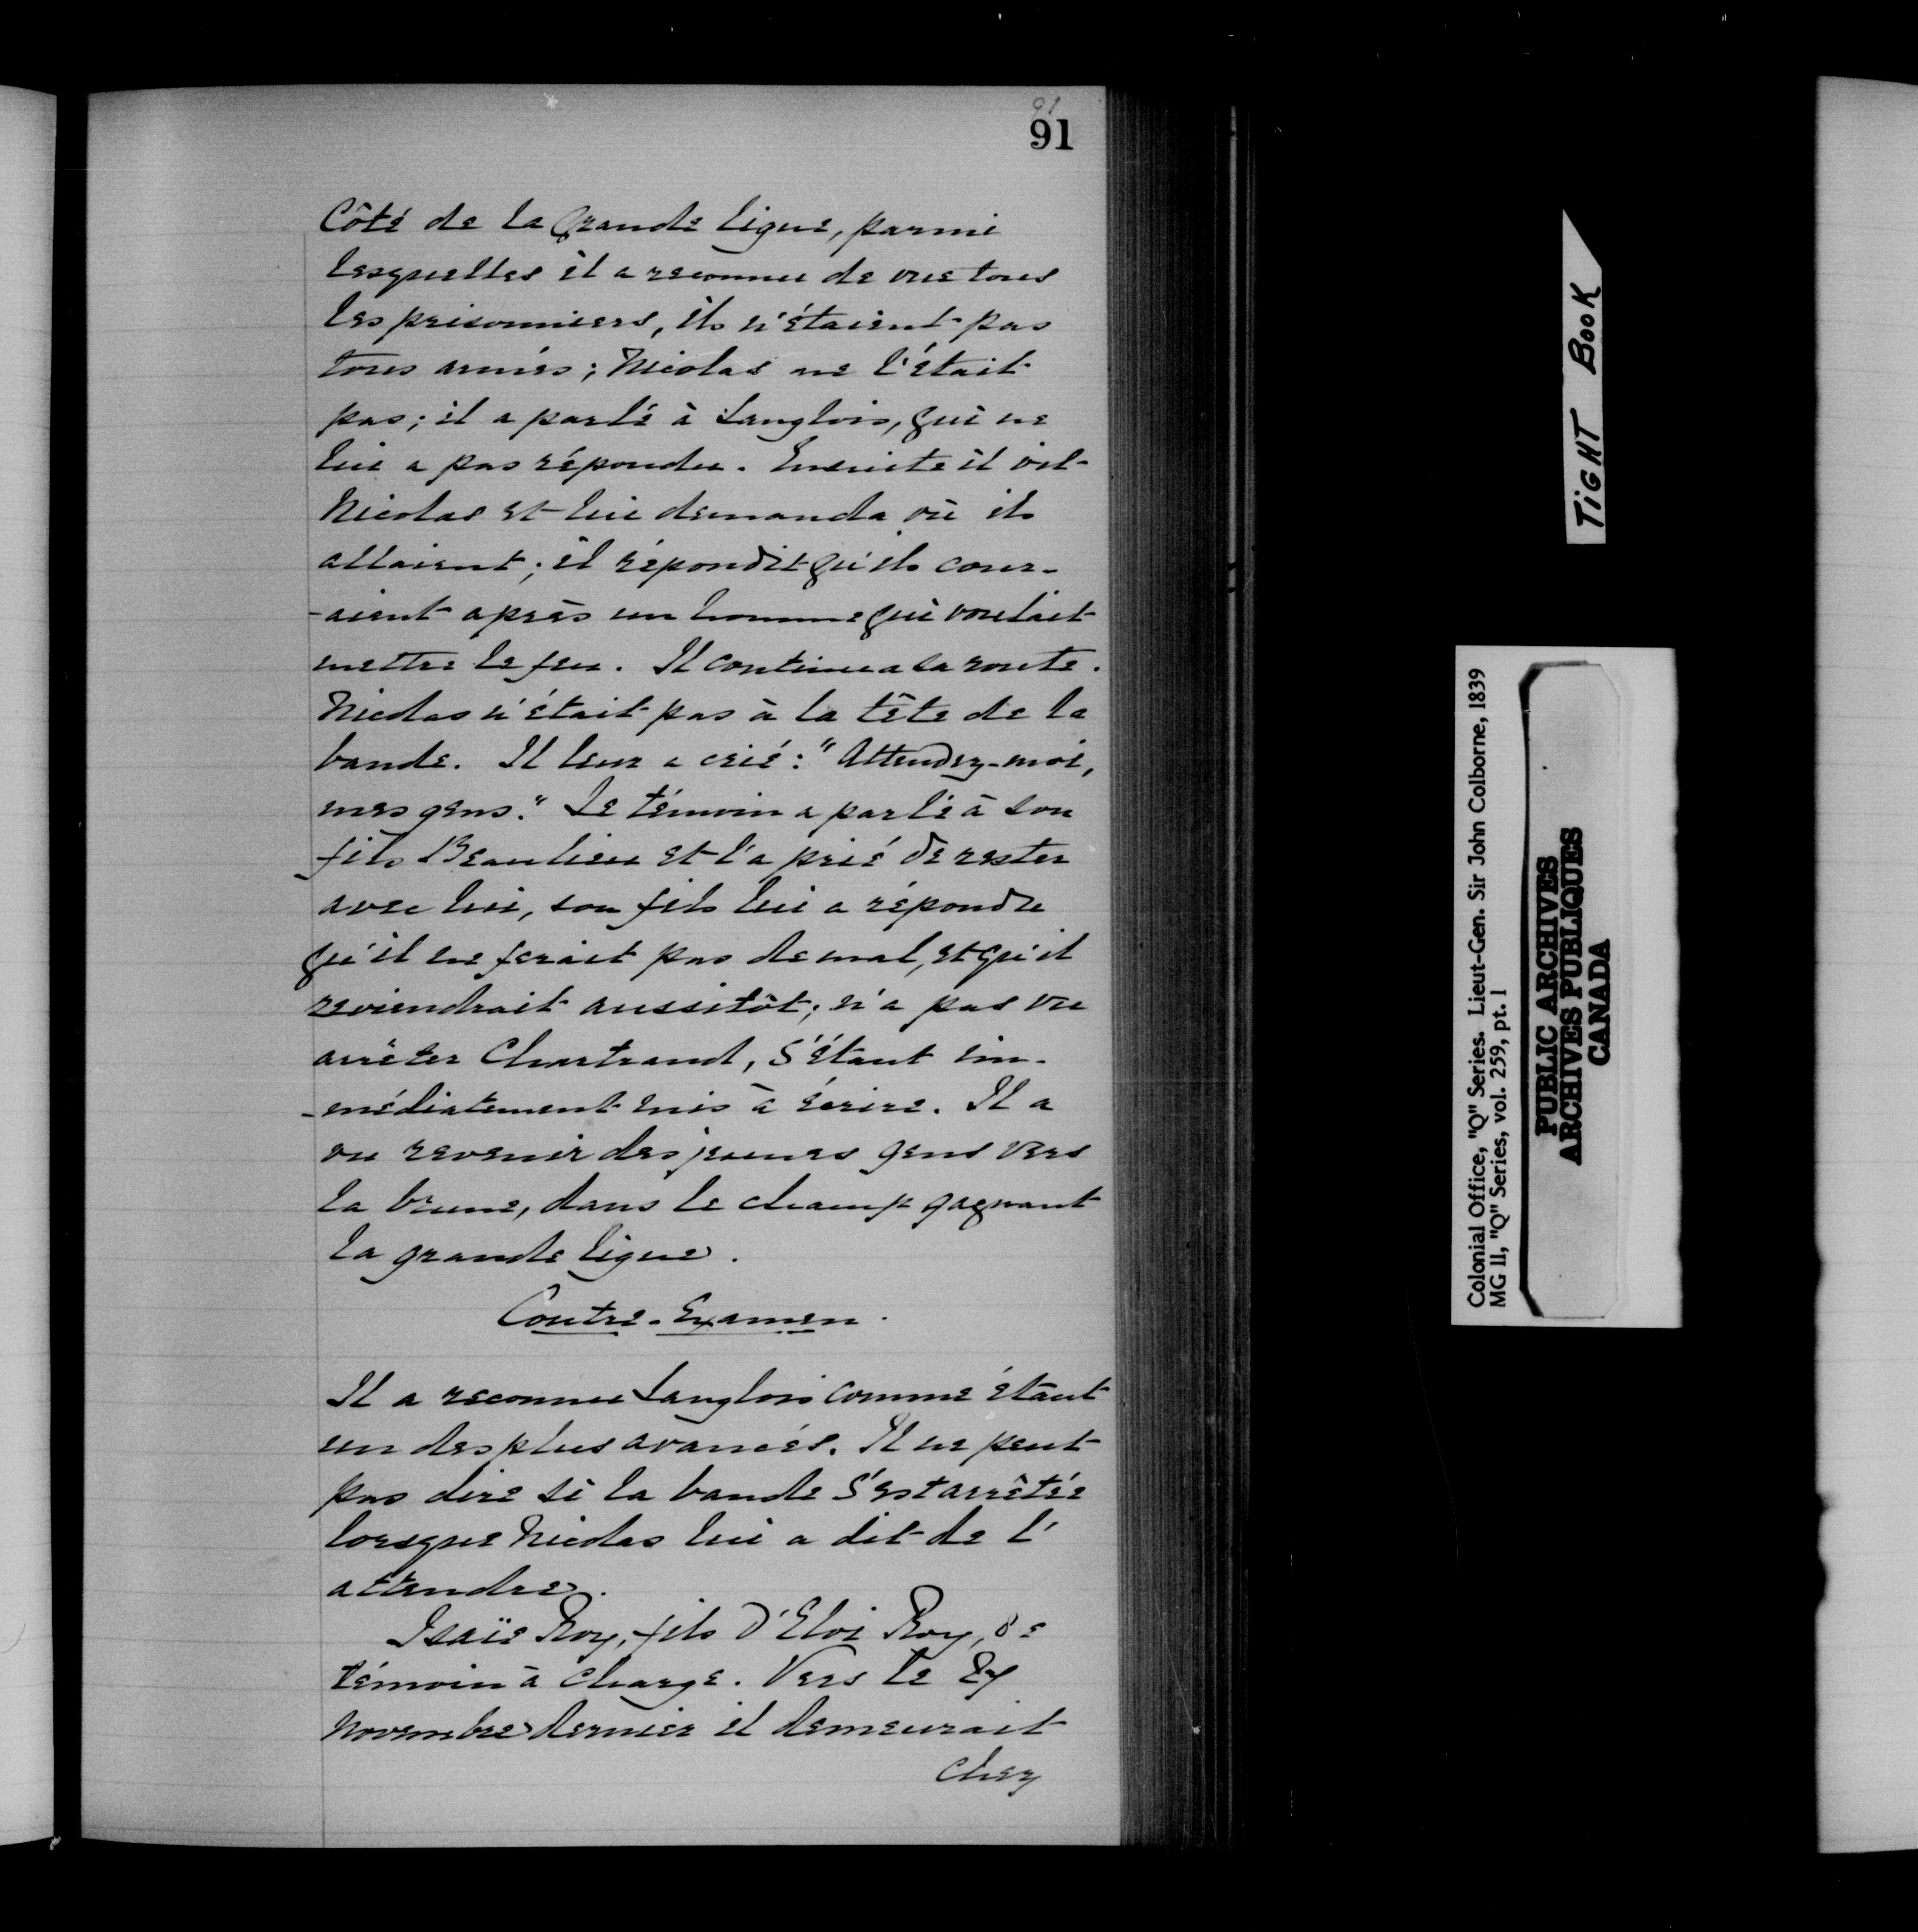 91
91
Côté de la Grande ligne, parmi
lesquelles il a reconnu de vue tous
les prisonniers, ils n'étaient pas
tous armés; Nicolas ne l'était
pas; il a parlé à Langlois, qui ne
lui a pas répondu. Ensuite il vit
Nicolas et lui demanda où ils
allaient; il répondit qu'ils cour-
-aient après un homme qui voulait
mettre le feu. Il continua sa route.
Nicolas n'était pas à la tête de la
bande. Il leur a crié: "Attendez-moi,
mes gens." Le témoin a parlé à son
fils Beaulieu et l'a prié de rester
avec lui, son fils lui a répondu
qu'il ne ferait pas de mal, et qu'il
reviendrait aussitôt; n'a pas vu
arrêter Chartrand, s'étant im-
-médiatement mis à écrire. Il a
vu revenir des jeunes gens vers
la brune, dans le champ gagnant
la grande ligne.
Contre-Examen.
Il a reconnu Langlois comme étant
un des plus avancés. Il ne peut
pas dire si la bande s'est arrêtée
lorsque Nicolas lui a dit de l'
attendre.
Isaïe Roy, fils d'Eloi Roy, 8e
témoin à charge. Vers le 27
Novembre dernier il demeurait
chez
TIGHT BOOK
Colonial Office, "Q" Series. Lieut-Gen. Sir John Colborne, 1839
MG 11, "Q" Series, vol. 259, pt. 1
PUBLIC ARCHIVES
ARCHIVES PUBLIQUES
CANADA